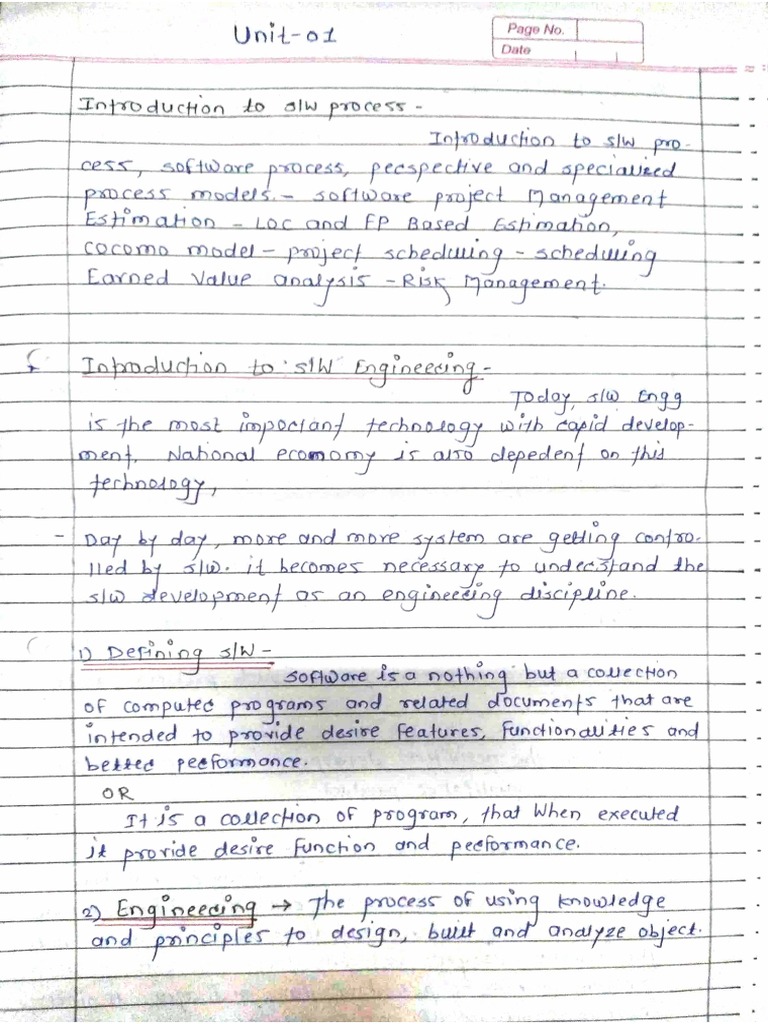 Unit-01
Page No.
Date
Introduction to s/w process -
Introduction to s/w pro-
cess, software process, perspective and specialized
process models. - software project Management
Estimation - LOC and FP Based Estimation,
COCOMO model - project scheduling - scheduling
Earned Value analysis - Risk Management.
Introduction to s/w Engineering -
Today, s/w Engg
is the most important technology with rapid develop-
ment, National economy is also depedent on this
technology,
- Day by day, more and more system are getting contro-
lled by s/w. it becomes necessary to understand the
s/w development as an engineering discipline.
1) Defining s/w -
Software is a nothing but a collection
of computer programs and related documents that are
intended to provide desire features, functionalities and
better performance.
OR
It is a collection of program, that when executed
it provide desire function and performance.
2) Engineering → The process of using knowledge
and principles to design, built and analyze object.